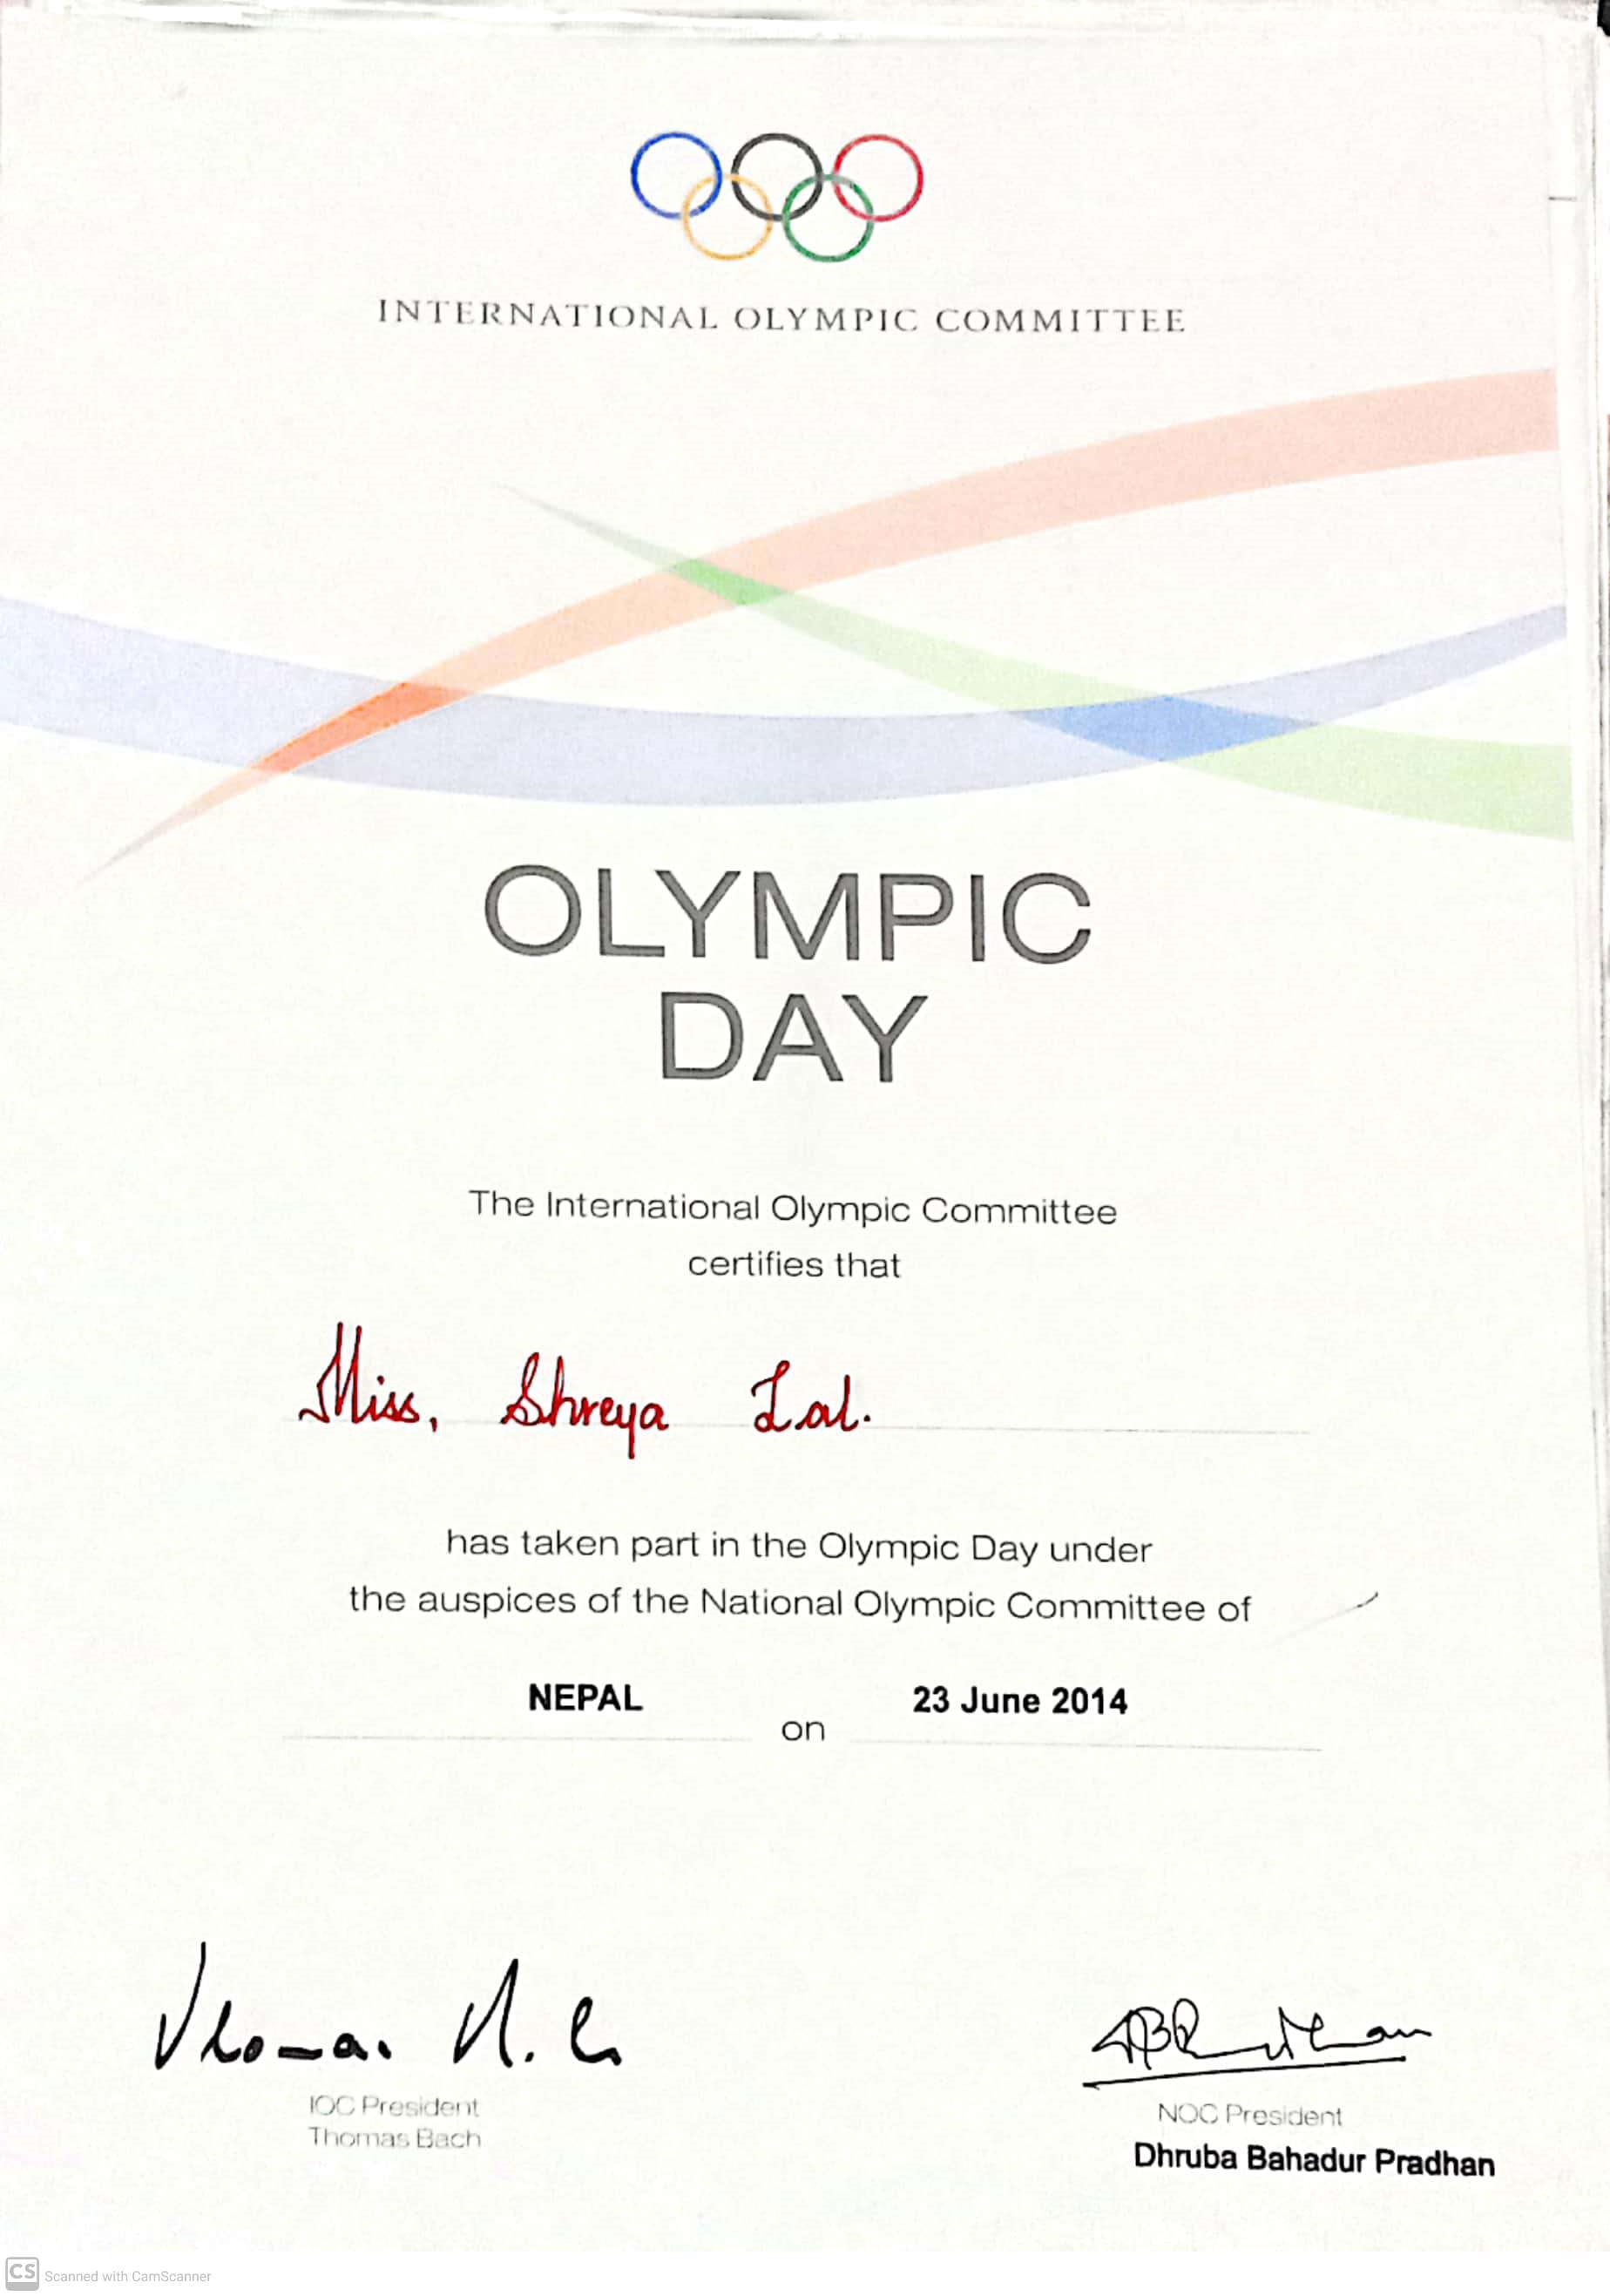 INTERNATIONAL OLYMPIC COMMITTEE
OLYMPIC
DAY
The International Olympic Committee
certifies that
Miss, Shreya Lal.
has taken part in the Olympic Day under
the auspices of the National Olympic Committee of
NEPAL on 23 June 2014
IOC President
Thomas Bach
NOC President
Dhruba Bahadur Pradhan
CS Scanned with CamScanner